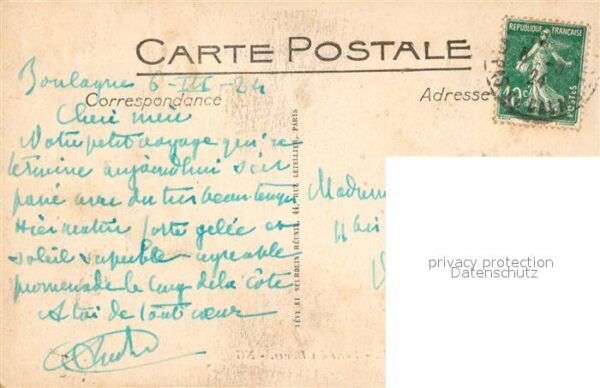 CARTE POSTALE
RÉPUBLIQUE FRANÇAISE
10c
POSTES
Boulogne 6-III-24
Correspondance
Adresse
Chère mère
Notre petit voyage qui se
termine aujourd'hui s'est
passé avec du très beau temps
Hier matin forte gelée et
soleil superbe - agréable
promenade le long de la côte
A toi de tout cœur
LÉVY ET NEURDEIN RÉUNIS, 44, RUE LETELLIER, PARIS
4 bis
privacy protection
Datenschutz